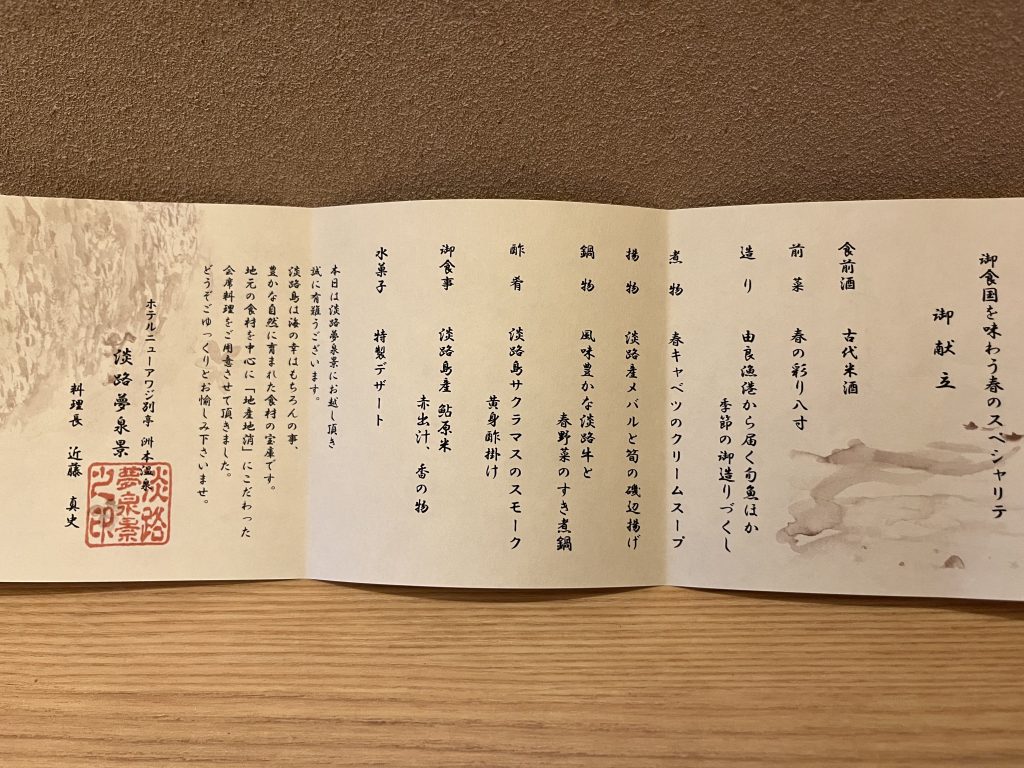 御食国を味わう春のスペシャリテ
御献立
食前酒 古代米酒
前菜 春の彩り八寸
造り 由良漁港から届く旬魚ほか
季節の御造りづくし
煮物 春キャベツのクリームスープ
揚物 淡路産メバルと筍の磯辺揚げ
鍋物 風味豊かな淡路牛と
春野菜のすき煮鍋
酢肴 淡路島サクラマスのスモーク
黄身酢掛け
御食事 淡路島産 鮎原米
赤出汁、香の物
水菓子 特製デザート
本日は淡路夢泉景にお越し頂き
誠に有難うございます。
淡路島は海の幸はもちろんの事、
豊かな自然に育まれた食材の宝庫です。
地元の食材を中心に「地産地消」にこだわった
会席料理をご用意させて頂きました。
どうぞごゆっくりとお愉しみ下さいませ。
ホテルニューアワジ別亭 洲本温泉
淡路夢泉景
料理長 近藤 真史
淡路
夢泉景
之印